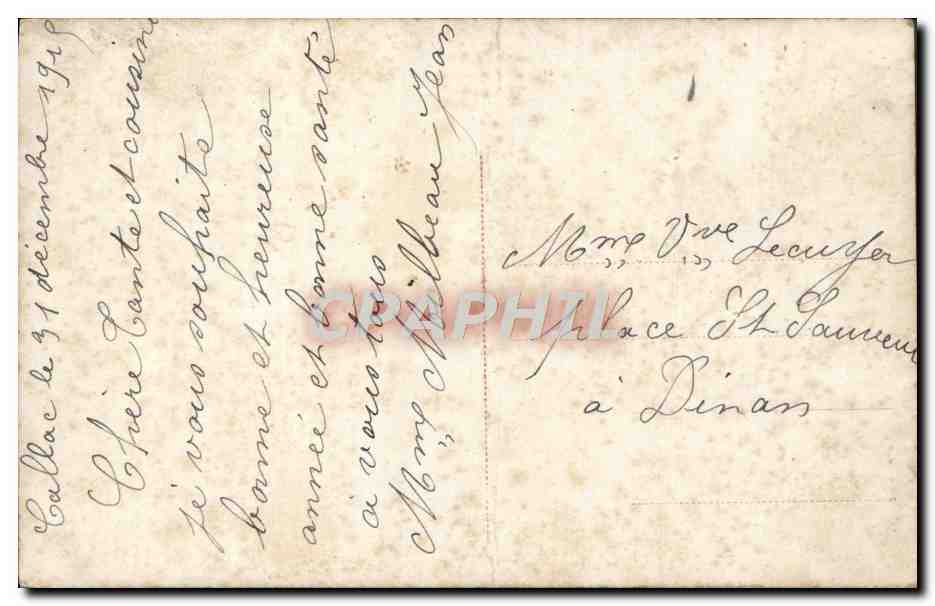 Callac le 31 décembre 1915
Chère Tante et cousine
je vous souhaite
bonne et heureuse
année et bonne santé
à vous tous
Mme Milbeau Jean
Mme Vve Lecuyer
place St Sauveur
à Dinan
CPAPHIL